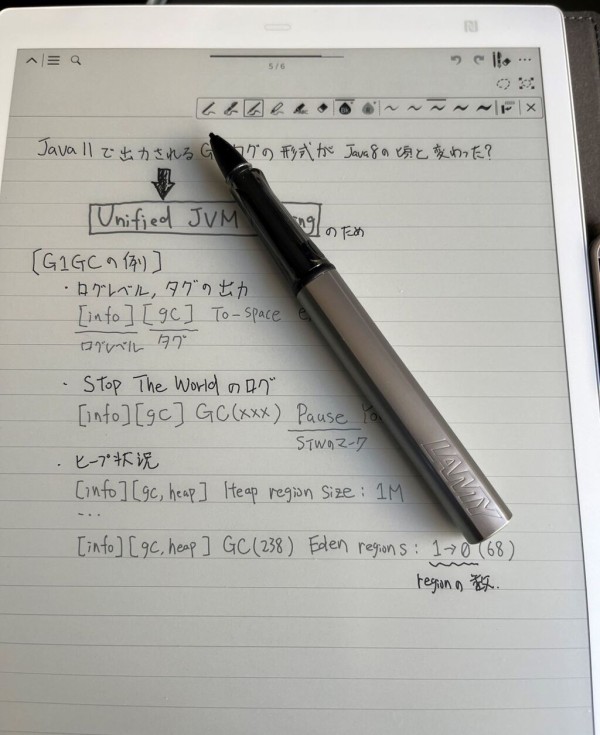 5/6
Java 11 で出力される G ログの形式が Java8の頃と変わった?
Unified JVM ng
のため
[G1GCの例]
・ログレベル,タグの出力
[info][gc] To-space
ログレベル タグ
・Stop The Worldのログ
[info][gc] GC(xxx) Pause Yo
STWのマーク
・ヒープ状況
[info][gc,heap] Heap region size: 1M
...
[info][gc,heap] GC(238) Eden regions: 1→0(68)
regionの数.
LAMY